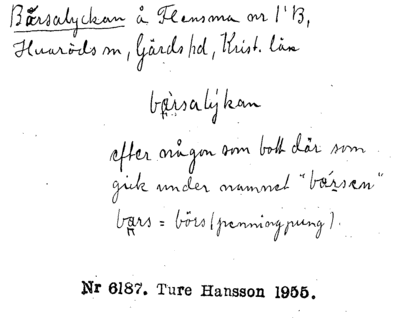 Bårsalyckan å Flensma nr 1 B,
Huaröds sn, Gärds hd, Krist. län
bårsalykan
efter någon som bott där som
gick under namnet "bårsen"
bars = börs (penningpung).
Nr 6187. Ture Hansson 1955.